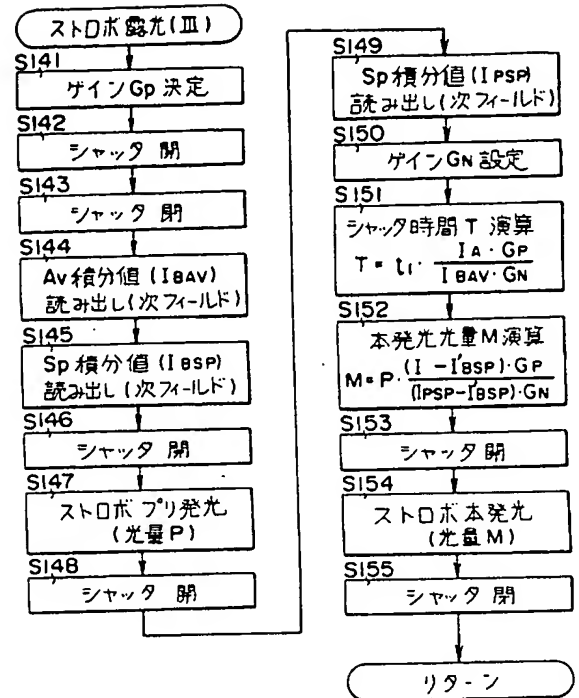 ストロボ露光(Ⅲ)
S141
ゲインGp 決定
S142
シャッタ 開
S143
シャッタ 閉
S144
Av積分値(IBAV)
読み出し(次フィールド)
S145
Sp積分値(IBSP)
読み出し(次フィールド)
S146
シャッタ 開
S147
ストロボ プリ発光
(光量P)
S148
シャッタ 閉
S149
Sp積分値(IPSP)
読み出し(次フィールド)
S150
ゲインGN 設定
S151
シャッタ時間T 演算
T = t1 · IA · GP / IBAV · GN
S152
本発光光量M演算
M = P · (I - I'BSP) · GP / (IPSP - I'BSP) · GN
S153
シャッタ 開
S154
ストロボ本発光
(光量M)
S155
シャッタ 閉
リターン